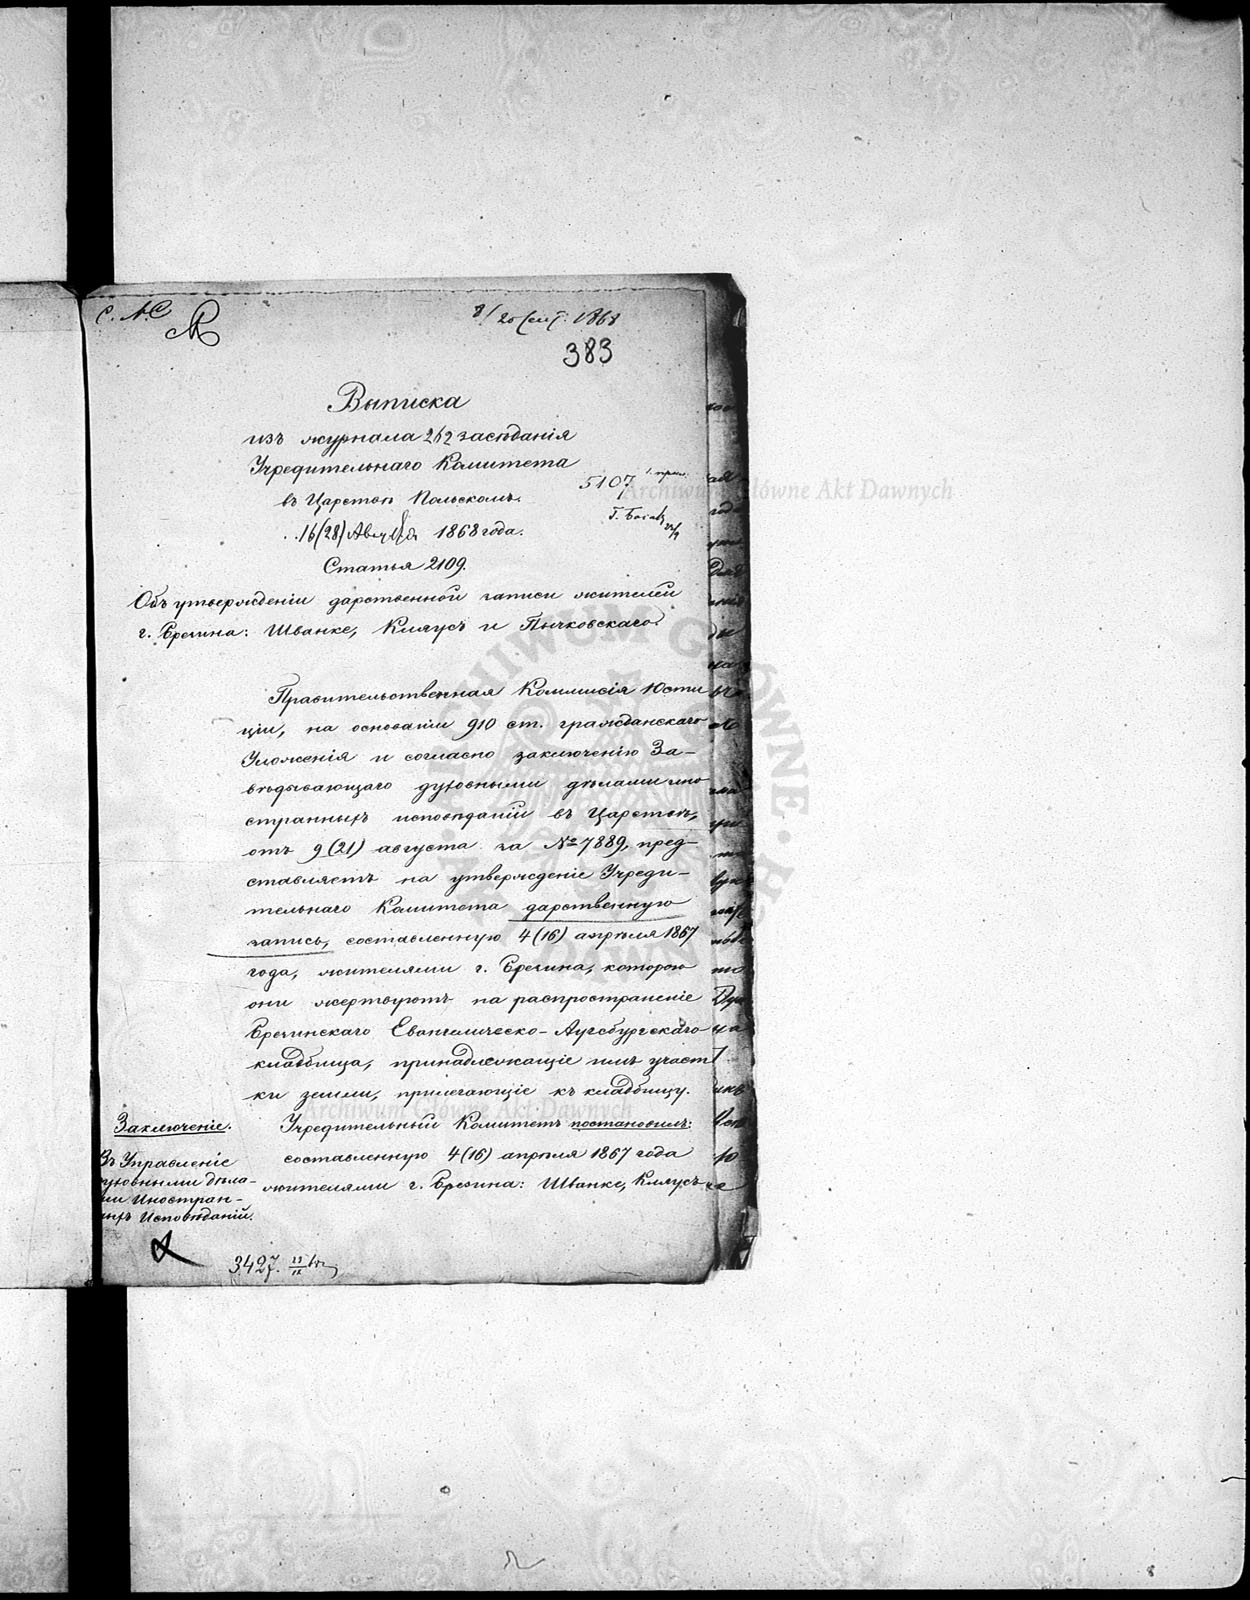 С. А. С
8/20 Сент. 1868
383
Выписка
изъ журнала 262 засѣданія
Учредительнаго Комитета
5107 1. прил.
въ Царствѣ Польскомъ.
16 (28) Августа 1868 года.
Статья 2109.
Объ утвержденіи дарственной записи жителей
г. Брезина: Шванке, Клаусъ и Пычковскаго.
Правительственная Коммисія Юсти
ціи, на основаніи 910 ст. гражданскаго
Уложенія и согласно заключенію За-
вѣдывающаго духовными дѣлами ино
странныхъ исповѣданій въ Царствѣ,
отъ 9 (21) августа за № 7889, пред-
ставляетъ на утвержденіе Учреди-
тельнаго Комитета дарственную
запись, составленную 4 (16) апрѣля 1867
года, жителями г. Брезина, которою
они жертвуютъ на распространеніе
Брезинскаго Евангелическо-Аугсбургскаго
кладбища, принадлежащіе имъ участ
ки земли, прилегающіе къ кладбищу.
Заключеніе.
Учредительный Комитетъ постановилъ:
составленную 4 (16) апрѣля 1867 года
жителями г. Брезина: Шванке, Клаусъ
Въ Управленіе
духовными дѣла-
ми Иностран-
ныхъ Исповѣданій.
3427.
Archiwum Główne Akt Dawnych
Archiwum Główne Akt Dawnych
ARCHIWUM GŁÓWNE AKT DAWNYCH